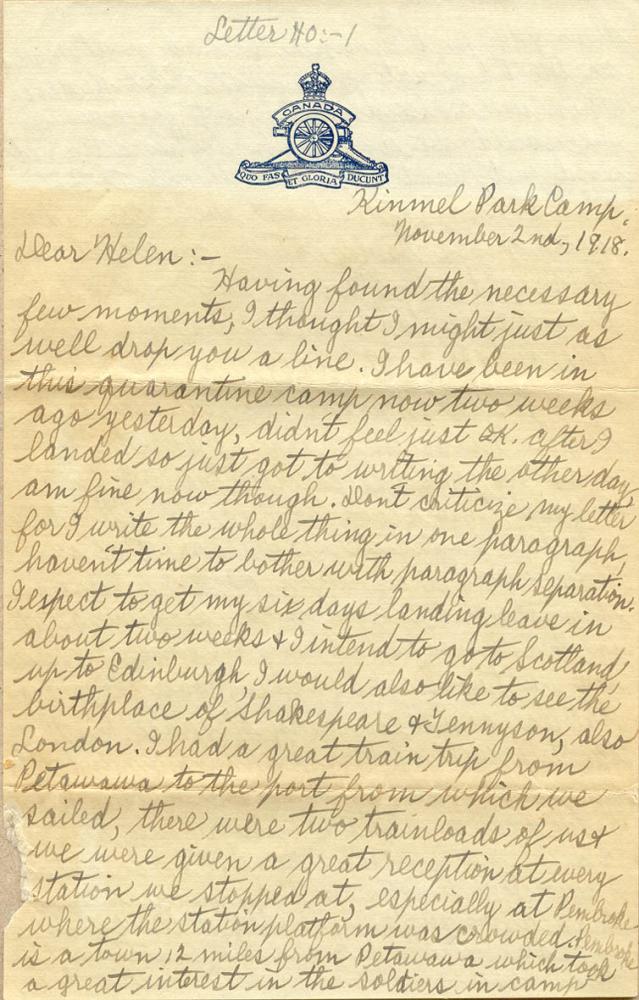 Letter No:-1
CANADA
QUO FAS ET GLORIA DUCUNT
Kinmel Park Camp,
November 2nd, 1918.
Dear Helen :-
Having found the necessary
few moments, I thought I might just as
well drop you a line. I have been in
this quarantine camp now two weeks
ago yesterday, didn't feel just OK. after I
landed so just got to writing the other day,
am fine now though. Don't criticize my letter
for I write the whole thing in one paragraph,
haven't time to bother with paragraph separation.
I espect to get my six days landing leave in
about two weeks & I intend to go to Scotland
up to Edinburgh, I would also like to see the
birthplace of Shakespeare & Tennyson, also
London. I had a great train trip from
Petawawa to the port from which we
sailed, there were two trainloads of us &
we were given a great reception at every
station we stopped at, especially at Pembroke
where the station platform was crowded. Pembroke
is a town 12 miles from Petawawa which took
a great interest in the soldiers in camp